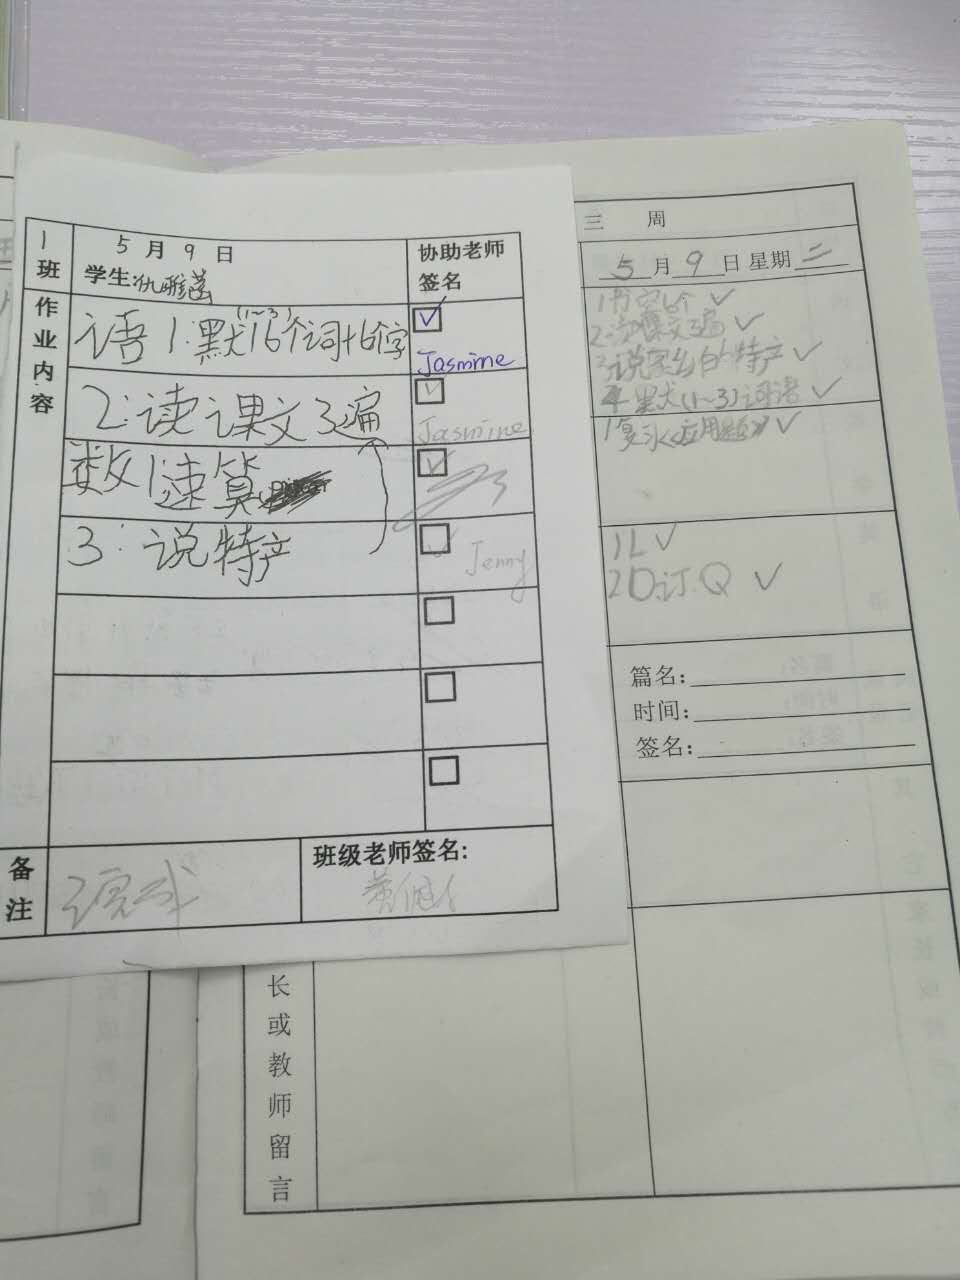 1班
5月9日
学生:仇雅菡
协助老师
签名
作业内容
语1.默16个词+6个字
(1~3)
Jasmine
2:读课文3遍
Jasmine
数1速算
3:说特产
Jenny
备注
班级老师签名:
三 周
5月9日 星期二
1书字6个
2读课文3遍
3说家乡的特产
4默(1~3)词语
1复习《应用题》
1L
2D订.Q
篇名:
时间:
签名:
长或教师留言